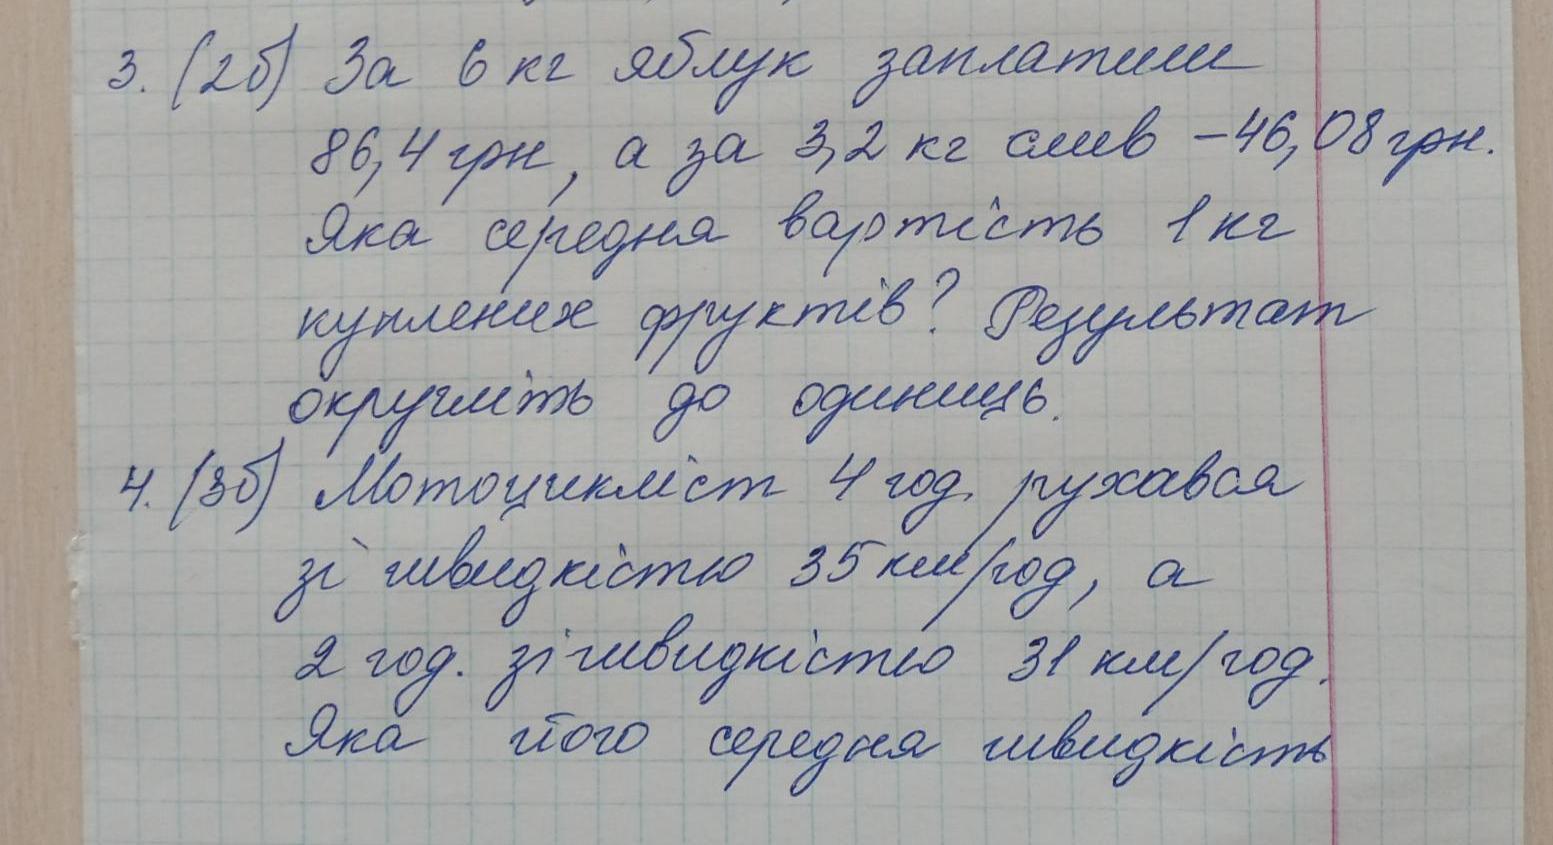 3. (2б) За 6 кг яблук заплатили
86,4 грн, а за 3,2 кг слив – 46,08 грн.
Яка середня вартість 1 кг
куплених фруктів? Результат
округліть до одиниць.
4. (3б) Мотоцикліст 4 год. рухався
зі швидкістю 35 км/год, а
2 год. зі швидкістю 31 км/год.
Яка його середня швидкість